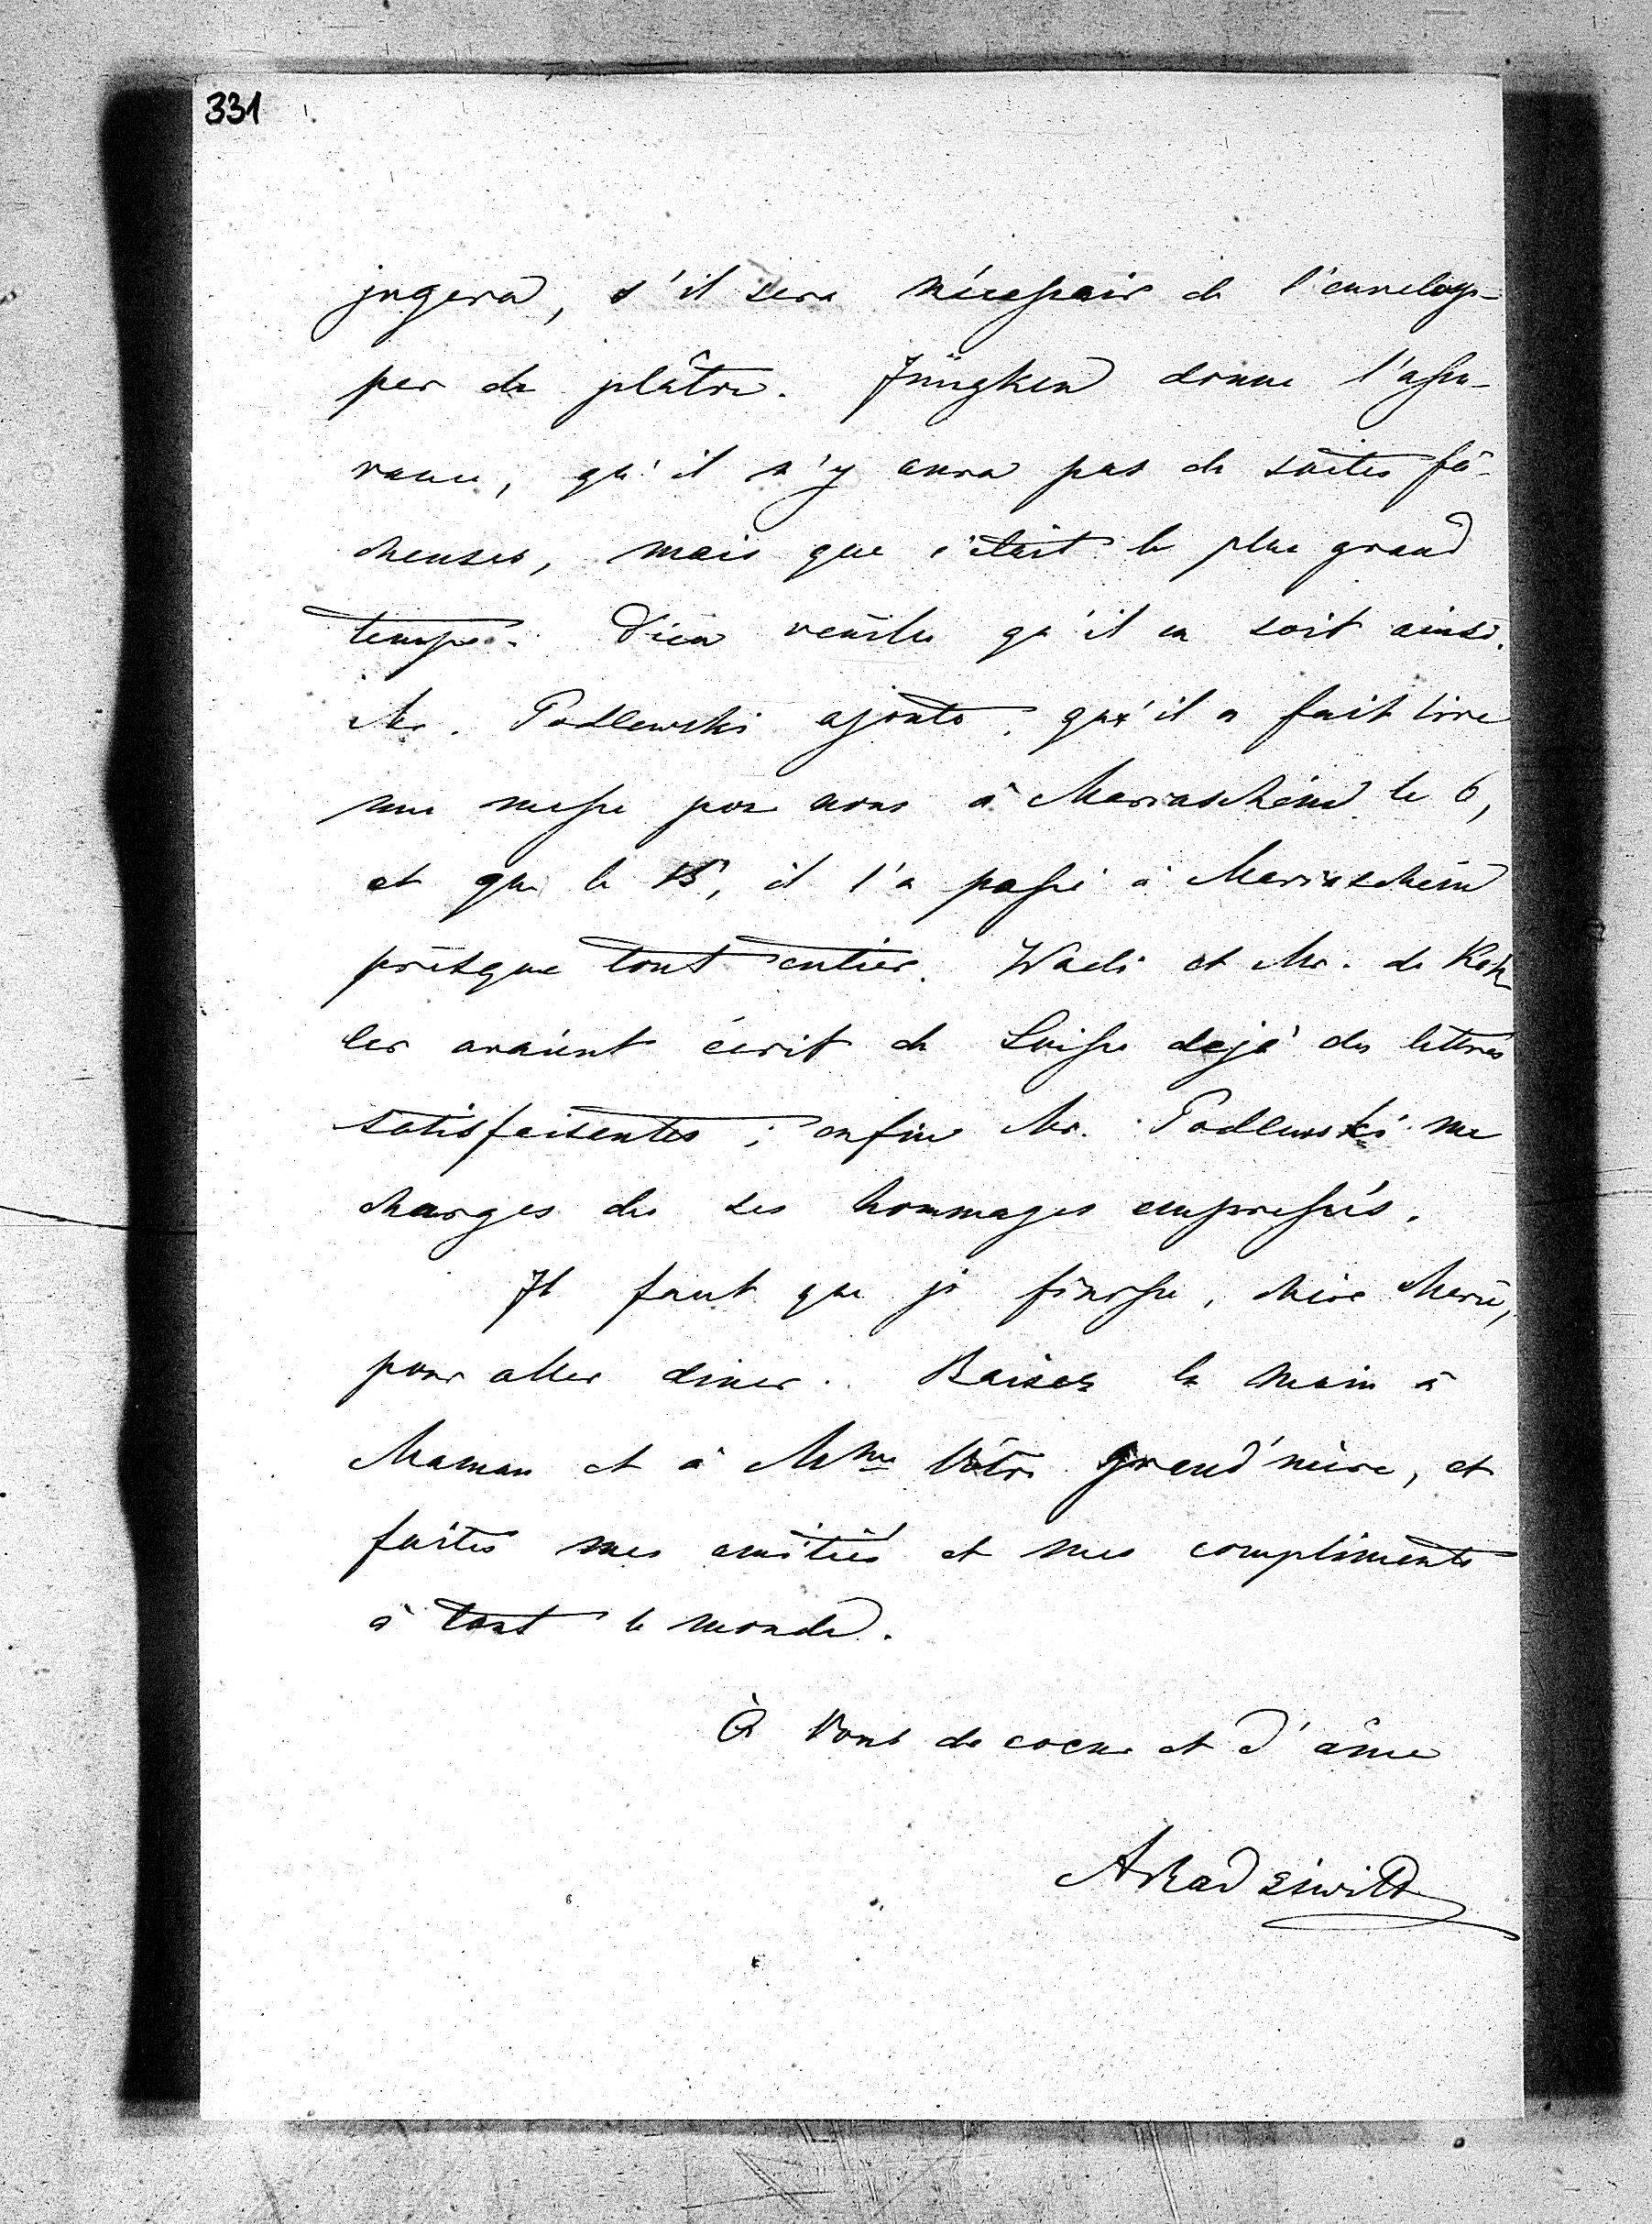 331
jugera, s'il sera nécessair de l'envelop-
per de plâtre. Jüngken donne l'assu-
rance, qu'il n'y aura pas de suites fâ-
cheuses, mais que c'était le plus grand
temps. Dieu veuille qu'il en soit ainsi.
Mr. Podlewski ajoute, qu'il a fait dire
une messe pour nous à Mariaschein le 6,
et que le 15, il l'a passé à Mariaschein
présque tout entier. Wadi et Mr. de Köh
ler avaient écrit de Suisse dejà des lettres
satisfaisentes; enfin Mr. Podlewski me
charges de ses hommages empressés.
Il faut que je finisse, chère Marie,
pour aller diner. Baisez la main à
Maman et à Mme Vôtre grand'mère, et
faites mes amitiés et mes compliments
à tout le monde.
À Vous de coeur et d'âme
ARadziwill